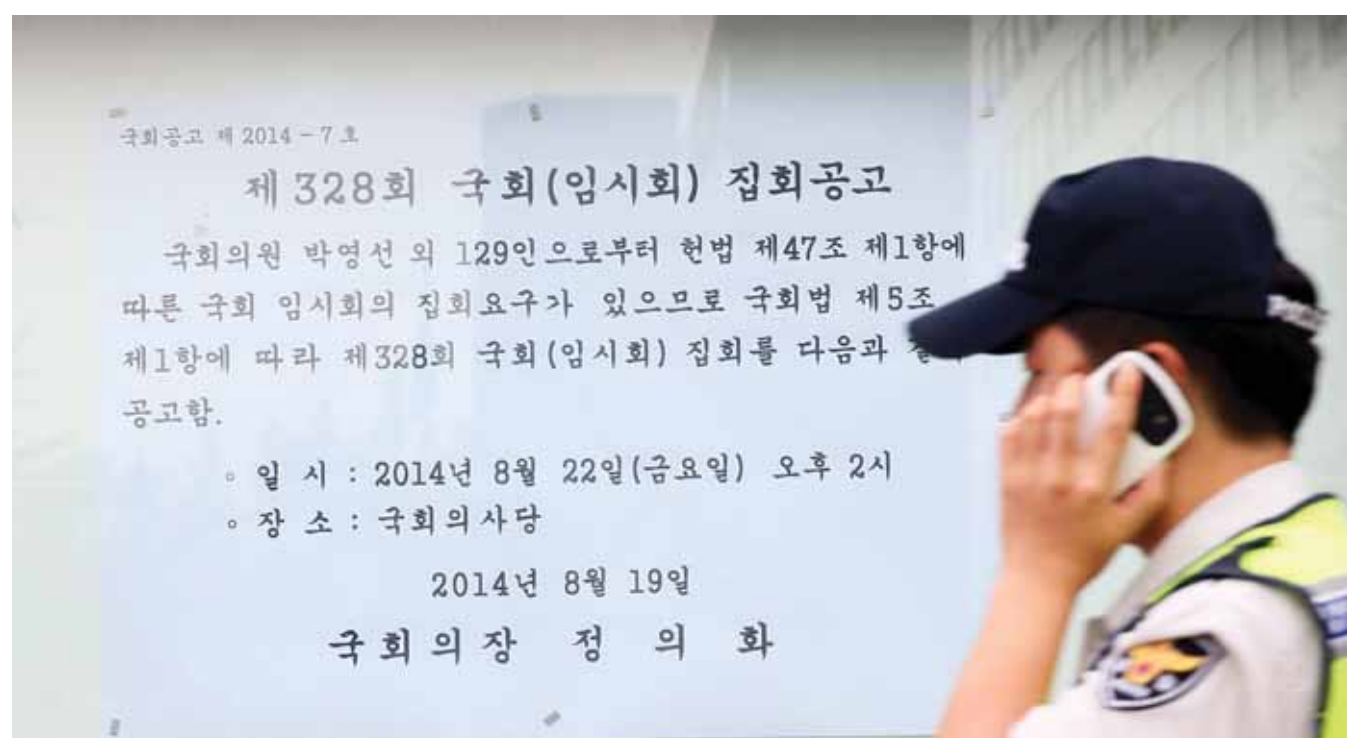 국회공고 제 2014 - 7 호
제 328회 국회(임시회) 집회공고
국회의원 박영선 외 129인으로부터 헌법 제47조 제1항에
따른 국회 임시회의 집회요구가 있으므로 국회법 제5조
제1항에 따라 제328회 국회(임시회) 집회를 다음과
공고함.
◦ 일 시 : 2014년 8월 22일(금요일) 오후 2시
◦ 장 소 : 국회의사당
2014년 8월 19일
국회의장 정 의 화